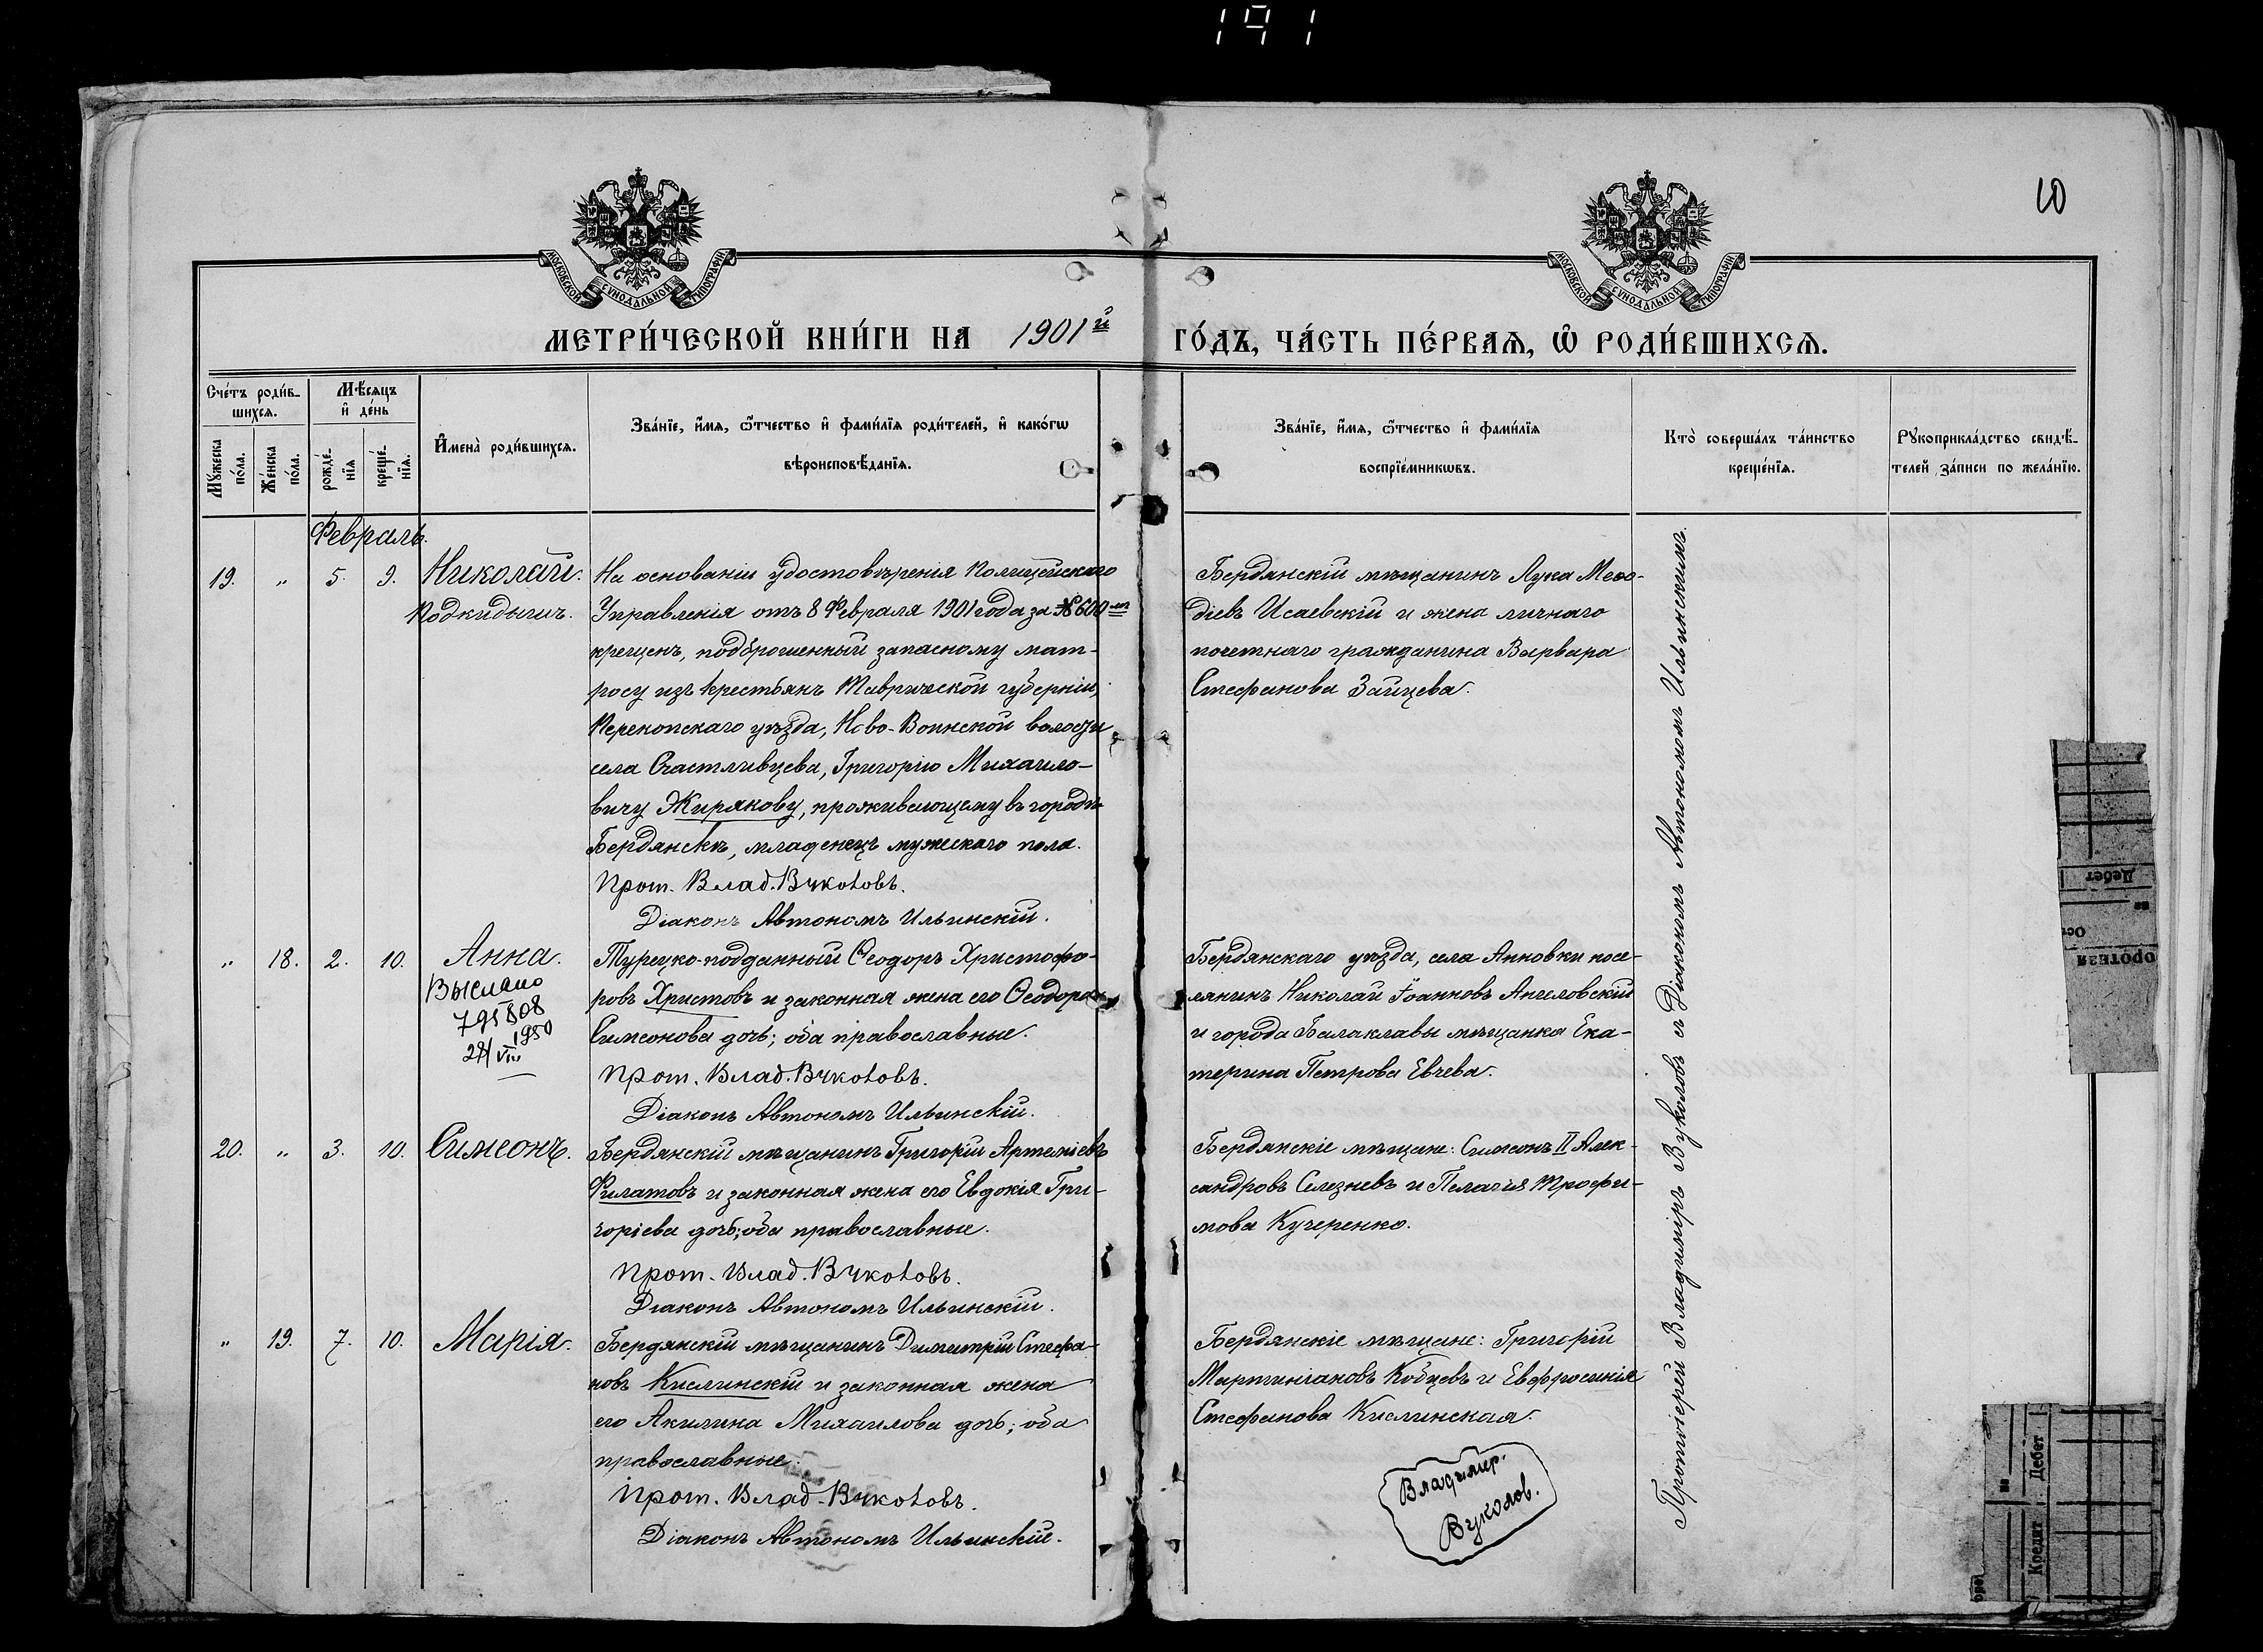 191
10
МОСКОВСКОЙ СѴНОДАЛЬНОЙ ТИПОГРАФІИ
МОСКОВСКОЙ СѴНОДАЛЬНОЙ ТИПОГРАФІИ
МЕТРИ́ЧЕСКОЙ КНИ́ГИ НА 1901й ГО́ДЪ, ЧА́СТЬ ПЕ́РВАѦ, Ѽ РОДИ́ВШИХСѦ.
Сче́тъ роди́в-
шихсѧ.
Мꙋ́жеска
по́ла.
Же́нска
по́ла.
Мѣ́сѧцъ
и҆ де́нь
рожде́-
нїѧ
креще́-
нїѧ.
И҆мена̀ роди́вшихсѧ.
Зва́нїе, и҆́мѧ, ѻ҆́тчество и҆ фами́лїѧ роди́телей, и҆ како́гѡ
вѣроисповѣ́данїѧ.
Зва́нїе, и҆́мѧ, ѻ҆́тчество и҆ фами́лїѧ
воспрїе́мникѡвъ.
Кто̀ соверша́лъ та́инство
креще́нїѧ.
Рꙋкоприкла́дство свидѣ́-
телей за́писи по жела́нїю.
Февраль.
19. „ 5. 9. Николай.
Подкидышъ.
На основаніи удостовѣренія Полицейскаго
Управленія отъ 8 Февраля 1901 года за № 600
крещенъ, подброшенный запасному мат-
росу изъ крестьянъ Таврической губерніи,
Перекопскаго уѣзда, Ново-Воинской волости
села Счастливцева, Григорію Михаило-
вичу Жирякову, проживающему въ городѣ
Бердянскѣ, младенецъ мужескаго пола.
Прот. Влад. Вуколовъ.
Діаконъ Автономъ Ильинскій.
Бердянскій мѣщанинъ Лука Меѳо-
діевъ Исаевскій и жена личнаго
почетнаго гражданина Варвара
Стефанова Зайцева.
„ 18. 2. 10. Анна.
Выслано
795808
28/VIII 1950
Турецко-подданный Ѳеодоръ Христофо-
ровъ Христовъ и законная жена его Ѳеодора
Симеонова дочь; оба православные.
Прот. Влад. Вуколовъ.
Діаконъ Автономъ Ильинскій.
Бердянскаго уѣзда, села Анновки посе-
лянинъ Николай Іоанновъ Ангеловскій
и города Балаклавы мѣщанка Ека-
терина Петрова Евчева.
20. „ 3. 10. Симеонъ.
Бердянскій мѣщанинъ Григорій Артеміевъ
Филатовъ и законная жена его Евдокія Гри-
горіева дочь; оба православные.
Прот. Влад. Вуколовъ.
Діаконъ Автономъ Ильинскій.
Бердянскіе мѣщане: Симеонъ II Алек-
сандровъ Селезневъ и Пелагія Трофи-
мова Кучеренко.
„ 19. 7. 10. Марія.
Бердянскій мѣщанинъ Димитрій Стефа-
новъ Кислинскій и законная жена
его Акилина Михаилова дочь; оба
православные.
Прот. Влад. Вуколовъ.
Діаконъ Автономъ Ильинскій.
Бердянскіе мѣщане: Григорій
Мартиніановъ Кобцевъ и Евфросинія
Стефанова Кислинская.
Владимир.
Вуколов.
Протоіерей Владиміръ Вуколовъ съ Діакономъ Автономомъ Ильинскимъ.
Дебет
Дебет
Кредит